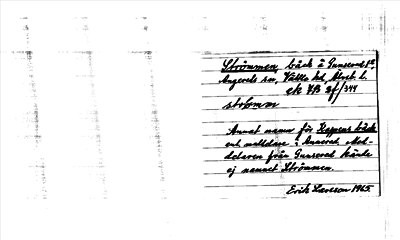 Strömmen, bäck å Gunserud 1²,
Ångereds sn, Vättle hd, Älvsb. l.
ek 7B 2f/344
strömm
Annat namn för Kappens bäck
enl. meddelare i Annered. Med-
delaren från Gunserud kände
ej namnet Strömmen.
Erik Larsson 1965.